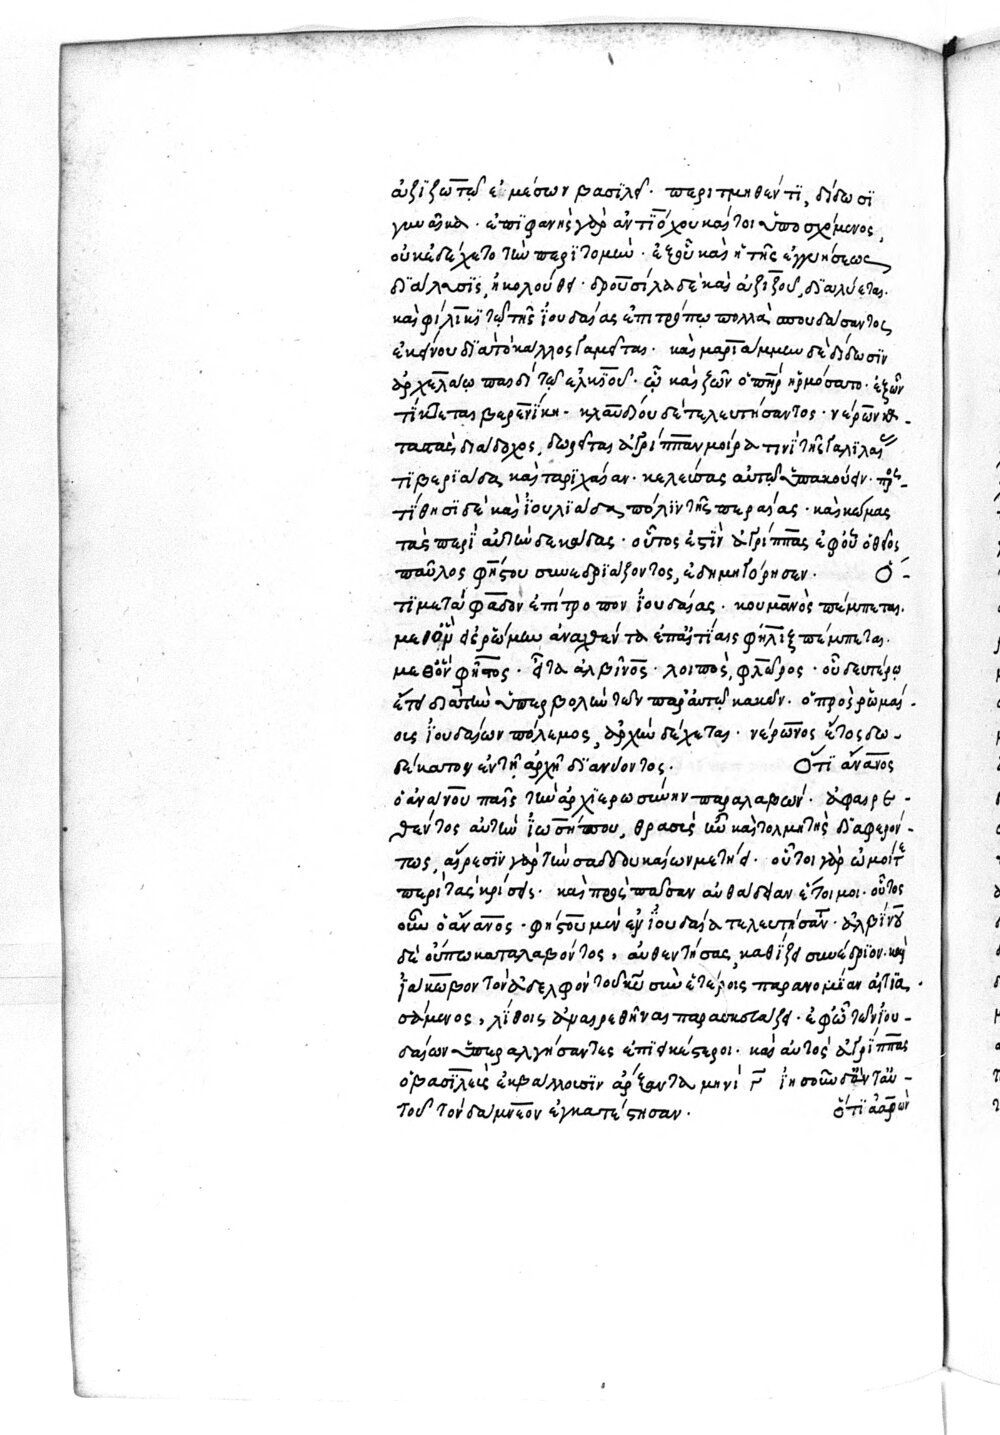 ἀζίζω τῶ ἐμέσων βασιλεῖ· περιτμηθέντι, δίδωσι
γυναῖκα· ἐπιφανὴς γὰρ ἀντιόχου καίτοι ὑποσχόμενος,
οὐκ ἐδέχετο τὴν περιτομήν· ἐξ οὗ καὶ ἡ τῆς ἐγγυήσεως
διάλυσις, ἠκολούθει· δρουσίλα δὲ καὶ ἀζίζου, διαλύεται·
καὶ φίλικι τῶ τῆς ἰουδαίας ἐπιτρόπω πολλὰ σπουδάσαντος
ἐκείνου διὰ τὸ κάλλος γαμεῖται· καὶ μαριάμμην δὲ δίδωσιν
ἀρχελάω παιδὶ τῶ ἐλκίου· ὧ καὶ ζῶν ὁ πατὴρ ἡρμόσατο· ἐξ ὧν
τίκτεται βερενίκη· κλαυδίου δὲ τελευτήσαντος· νέρων κα-
ταπαὶς διάδοχος, δωρεῖται ἀγρίππαν μοίρα τινὶ τῆς γαλιλαίας
τιβεριάδα καὶ ταριχαίαν· κελεύσας αὐτῶ ὑπακούειν· προσ-
τίθησι δὲ καὶ ἰουλιάδα πόλιν τῆς περαίας· καὶ κώμας
τὰς περὶ αὐτὴν δεκαδας· οὗτος ἐστὶν ἀγρίππας ἐφ' οὗ ὁ θεῖος
παῦλος φήστου συνεδριάζοντος, ἐδημηγόρησεν· Ὅ-
τι μετὰ φάδον ἐπίτροπον ἰουδαίας· κουμανὸς πέμπεται·
μεθ' ὃν εἰρώμην ἀναχθέντα ἐπ' αἰτίαις φῆλιξ πέμπεται·
μεθ' ὃν φῆστος· εἶτα ἀλβῖνος· λοιπὸς, φλῶρος· οὗ δευτέρω
ἔτει διὰ τὴν ὑπερβολὴν τῶν παρ' αὐτῶ κακῶν· ὁ πρὸς ῥωμαί-
οις ἰουδαίων πόλεμος, ἀρχὴν δέχεται· νέρωνος ἔτος δω-
δέκατον ἐν τῆ ἀρχῆ διανύοντος· Ὅτι ἄνανος
ὁ ἀνάνου παῖς τὴν ἀρχιερωσύνην παραλαβών· ἀφαιρε-
θέντος αὐτὴν ἰωσήπου, θρασὺς ἦν καὶ τολμητὴς διαφερόν-
τως, αἵρεσιν γὰρ τὴν σαδδουκαίων μετήει· οὗτοι γὰρ ὠμοί τε
περὶ τὰς κρίσεις· καὶ πρὸς πᾶσαν αὐθάδειαν ἕτοιμοι· οὗτος
οὖν ὁ ἄνανος· φήστου μὲν ἐν ἰουδαία τελευτήσαντος· ἀλβίνου
δὲ οὔπω καταλαβόντος, αὐθεντήσας, καθίζει συνέδριον· καὶ
ἰάκωβον τὸν ἀδελφὸν τοῦ κυ σὺν ἑτέροις παρανομίαν αἰτια-
σάμενος, λίθοις ἀναιρεθῆναι παρασκευάζει· ἐφ' ὧ τῶν ἰου-
δαίων ὑπεραλγήσαντες ἐπιεικέστεροι· καὶ αὐτὸς ἀγρίππας
ὁ βασιλεὺς ἐκβάλλουσιν ἄρξαντα μῆνας γ ἰησοῦν δὲ ἀντ' αὐ-
τοῦ τὸν δαμνέον ἐγκατέστησαν· Ὅτι ἀαρὼν